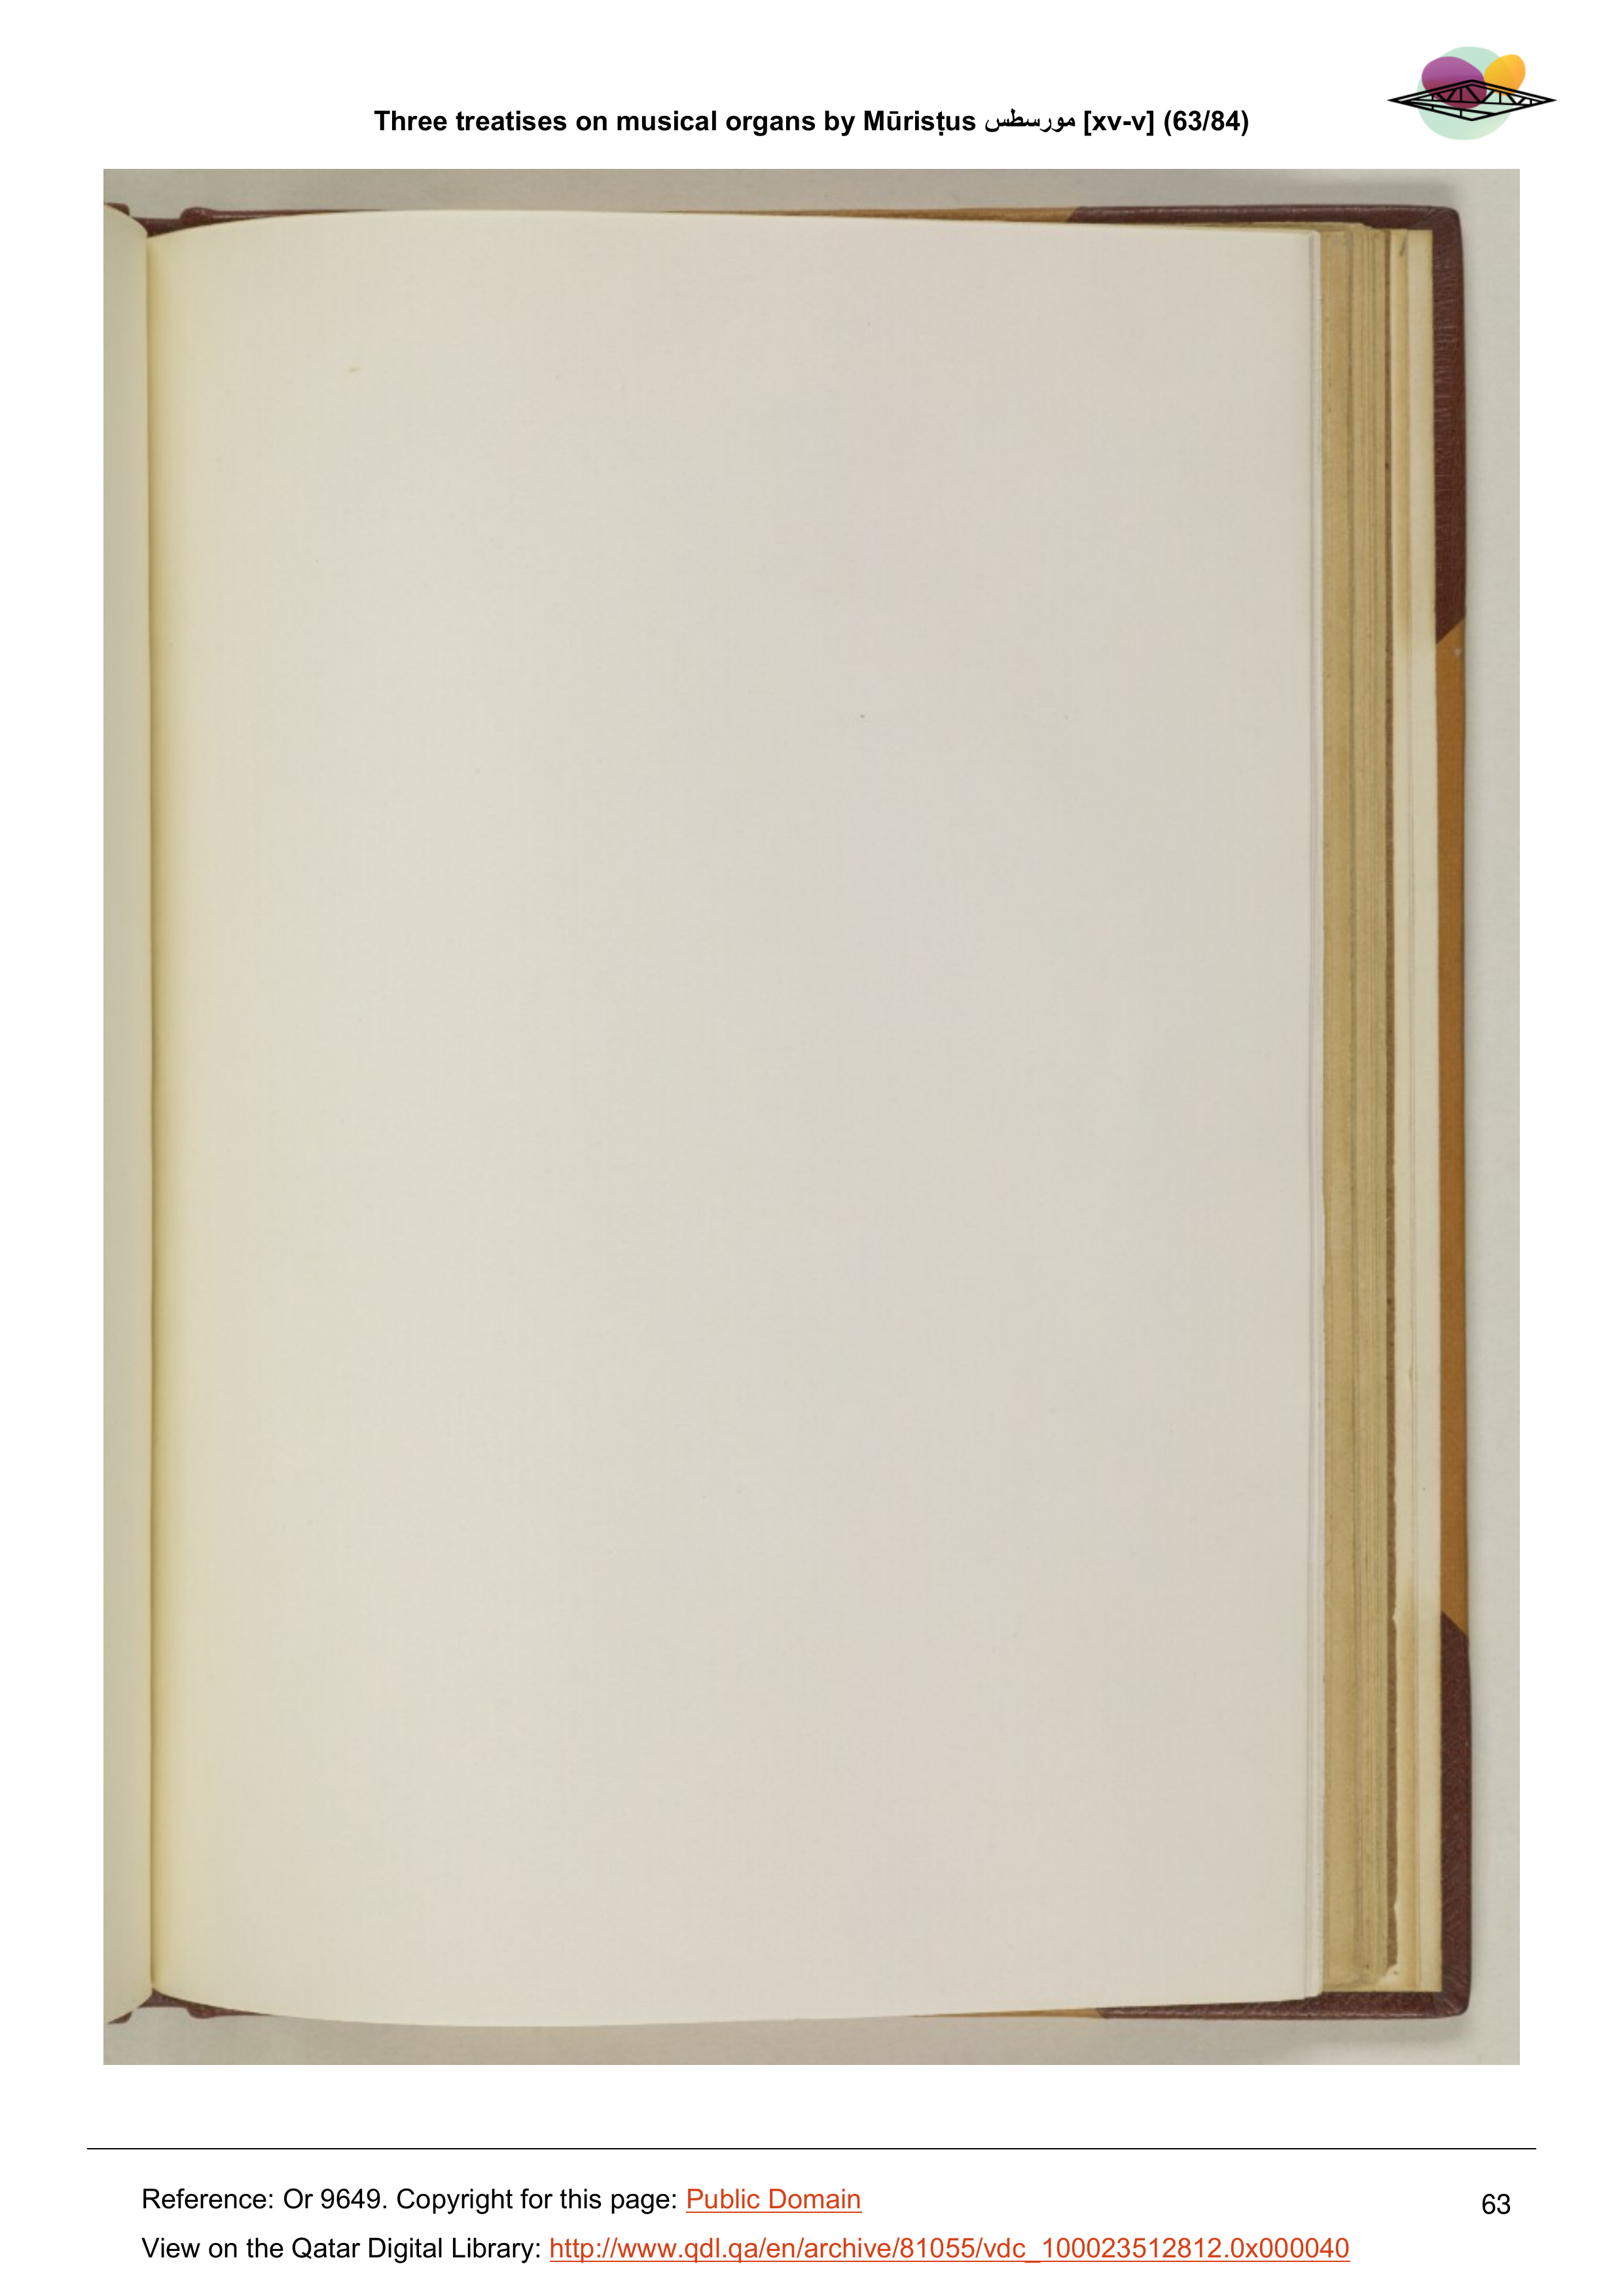 Three treatises on musical organs by Mūrisṭus مورسطس [xv-v] (63/84)
Reference: Or 9649. Copyright for this page: Public Domain
63
View on the Qatar Digital Library: http://www.qdl.qa/en/archive/81055/vdc_100023512812.0x000040